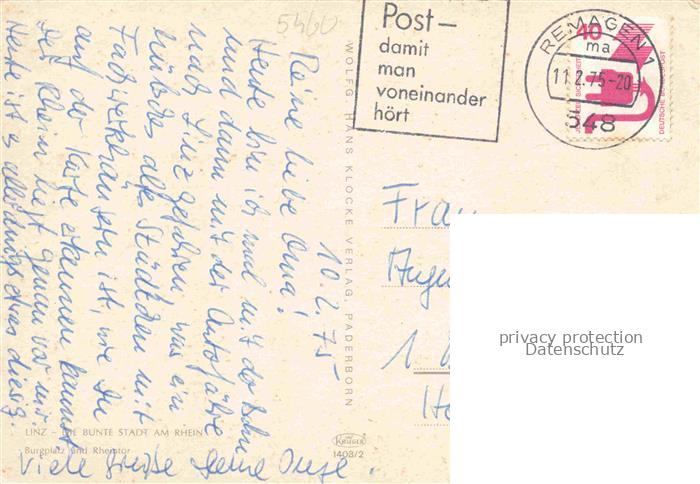 5460
Post –
damit
man
voneinander
hört
REMAGEN 1
ma
11.2.75-20
548
40
JEDERZEIT SICHERHEIT
DEUTSCHE BUNDESPOST
10.2.75
Meine liebe Oma!
Heute bin ich mal mit der Bahn
und dann mit der Autofähre
nach Linz gefahren, was ein
hübsches altes Städtchen mit
Fachwerkhäusern ist, wie Du
auf der Karte erkennen kannst.
Der Rhein liegt genau vor mir.
Heute ist es allerdings etwas diesig.
Viele Grüße Deine
WOLFG. HANS KLOCKE VERLAG, PADERBORN
Frau
1
LINZ – DIE BUNTE STADT AM RHEIN
Burgplatz und Rheintor
KRÜGER
1403/2
privacy protection
Datenschutz